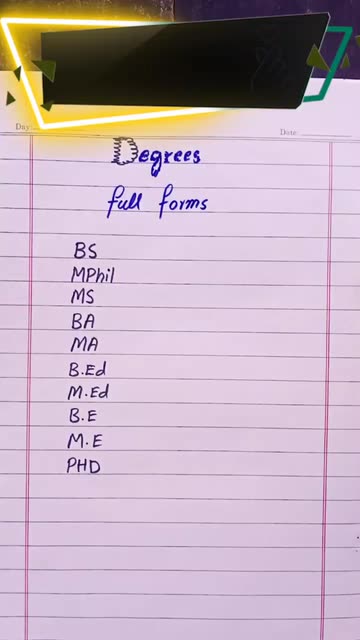 Day: Date:
Degrees
full forms
BS
MPhil
MS
BA
MA
B.Ed
M.Ed
B.E
M.E
PHD